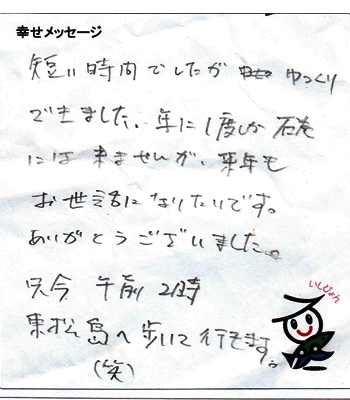 幸せメッセージ
短い時間でしたが ゆっくり
できました。年に1度しか石巻
には来ませんが、来年も
お世話になりたいです。
ありがとうございました。
只今 午前2時
東松島へ歩いて行きます。
(笑)
いしぴょん